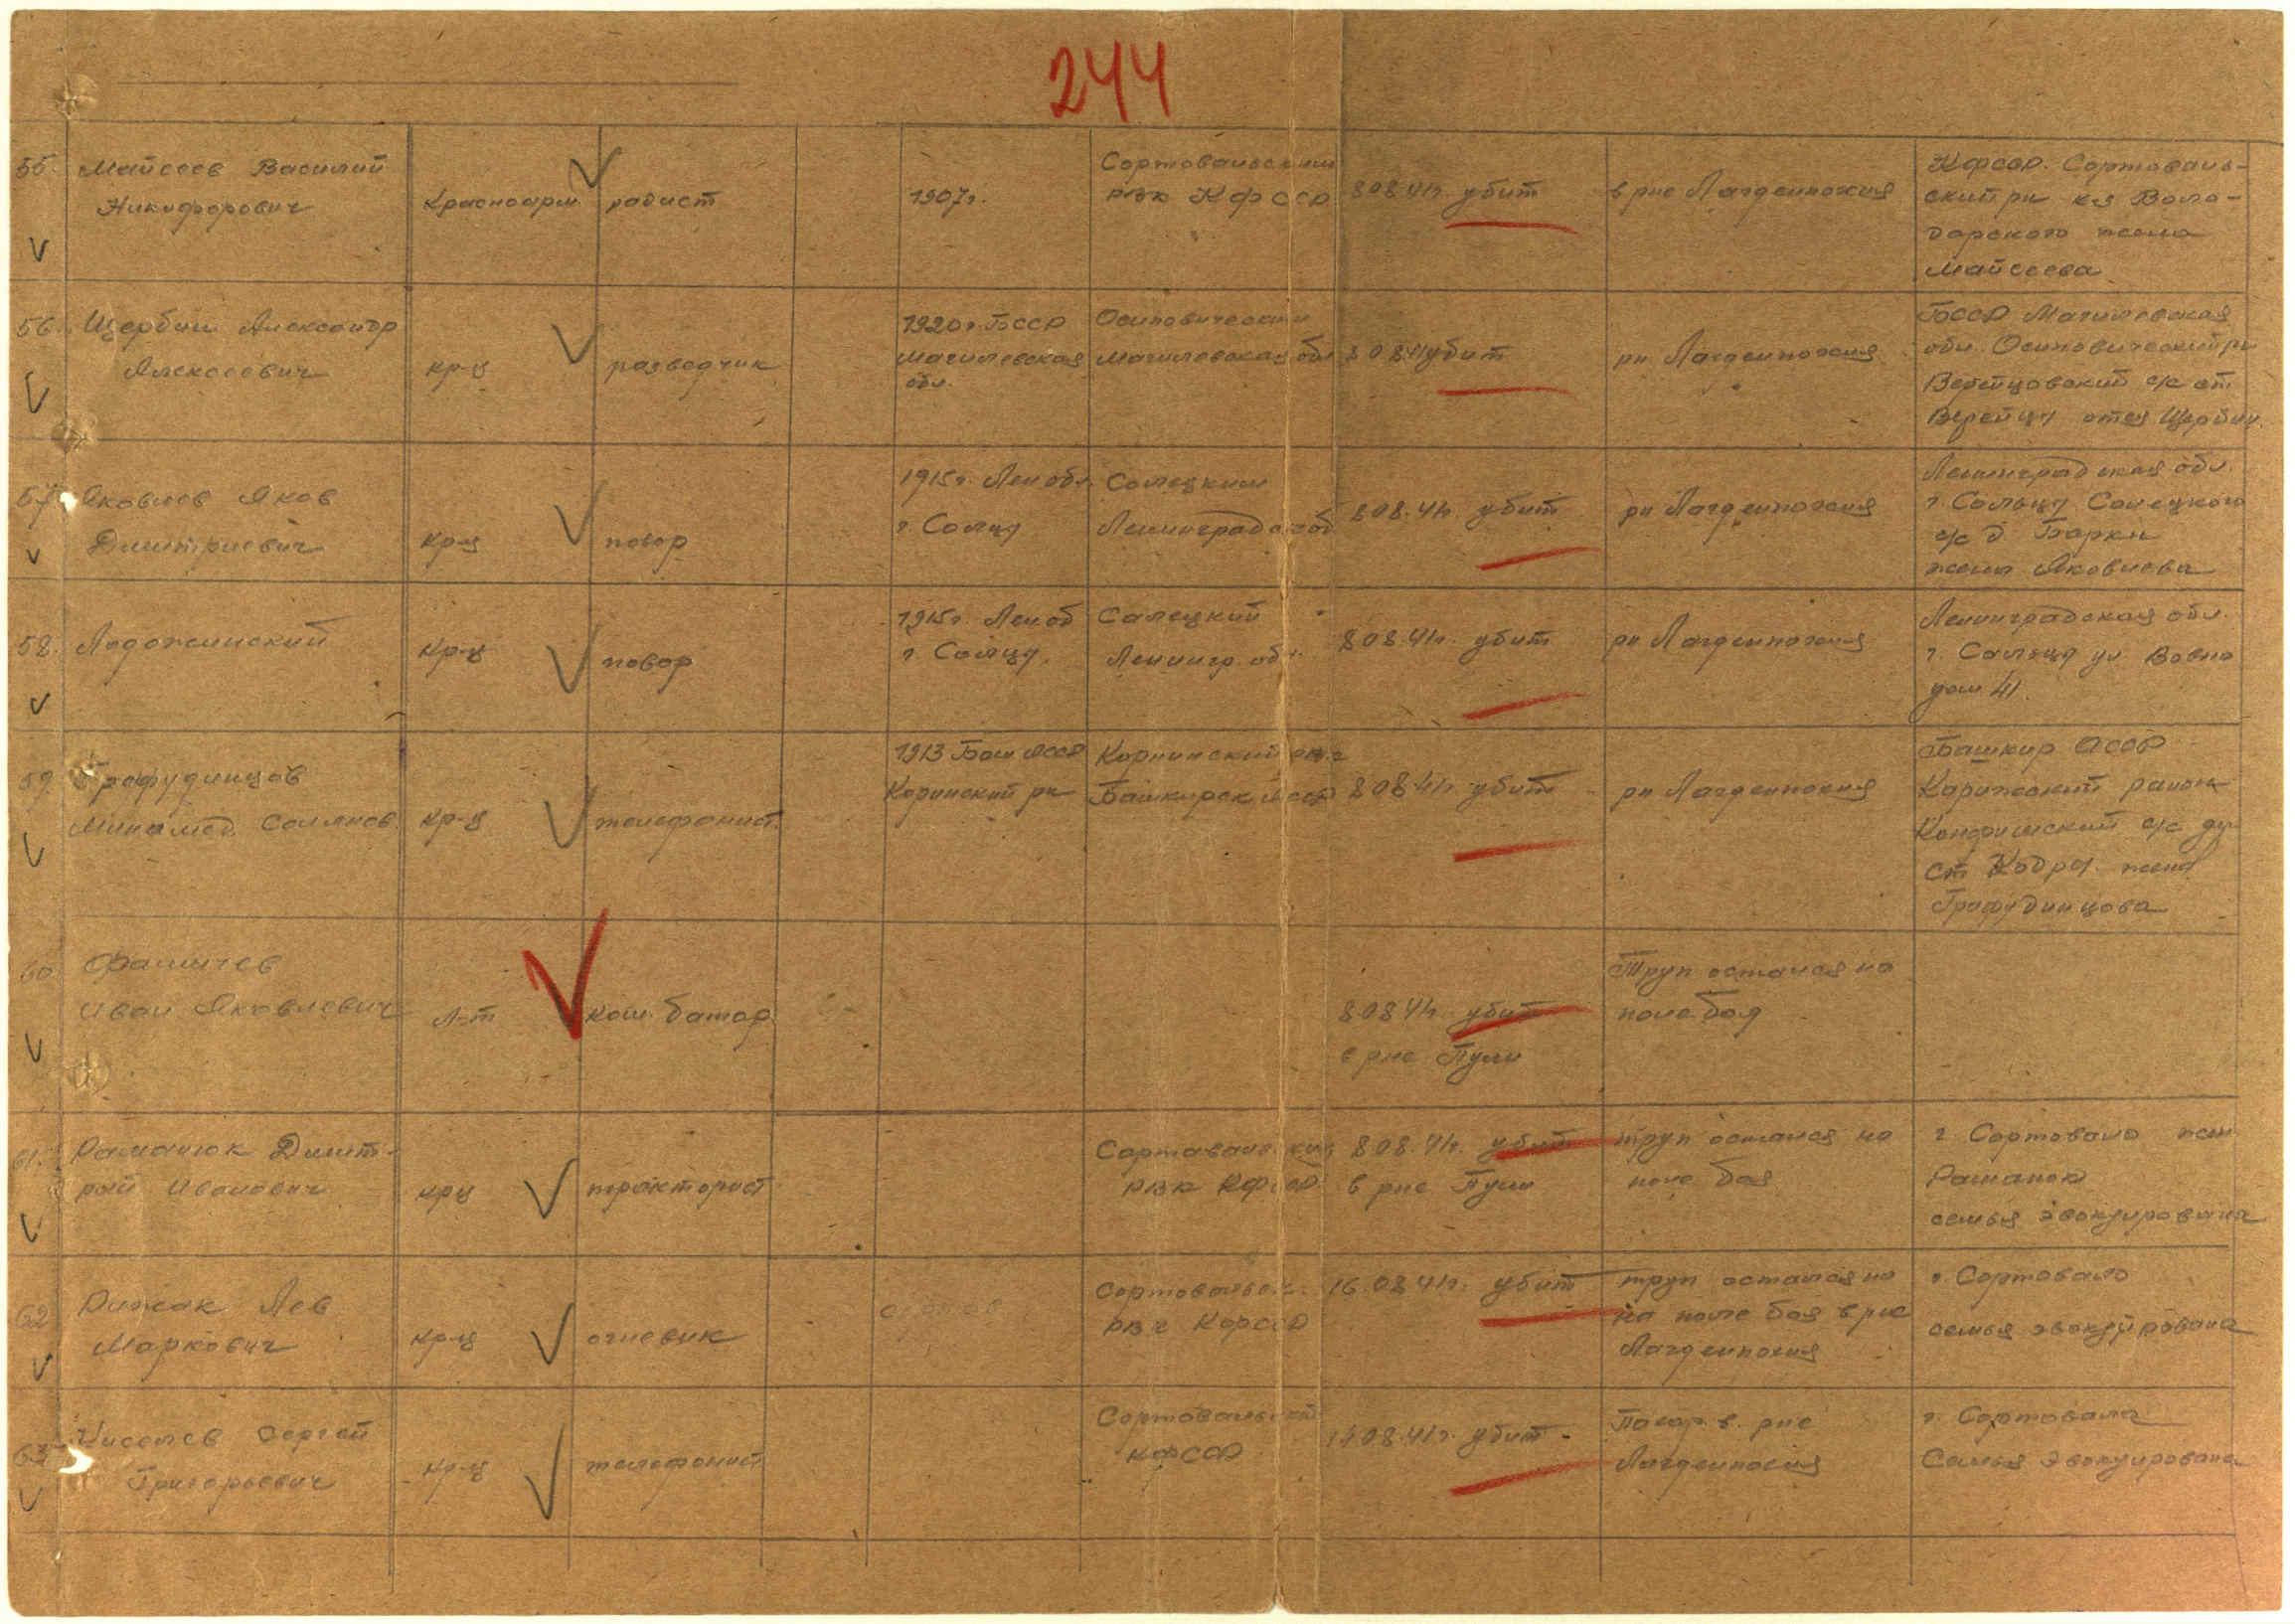 244
55. Майсеев Василий
Никифорович
Красноарм.
радист
1907г.
Сортовальский
рвк КФССР
8.08.41г. убит
в рне Лагденпохия
КФССР. Сортоваль-
ский рн к-з Воло-
дарского жена
Майсеева
56. Щербин Александр
Алексеевич
кр-ц
разведчик
1920г. БССР
Магилевская
обл.
Осиповический
Магилевская обл
8.08.41 убит
рн Лагденпохия
БССР Магилевская
обл. Осиповический рн
Верейцовский с/с ст.
Верейцы отец Щербин
57. Яковлев Яков
Дмитриевич
кр-ц
повор
1915г. Лен обл.
г. Солцы
Солецким
Ленинград об
8.08.41г. убит
рн Лагденпохия
Ленинградская обл.
г. Сольцы Солецкого
с/с д. Барки
жена Яковлева
58. Ладожинский
кр-ц
повор
1915г. Лен об
г. Солцы
Салецкий
Ленингр. обл.
8.08.41г. убит
рн Лагденпохия
Ленинградская обл.
г. Сольцы ул.
дом 41.
59. Графудинцов
Минамед.
кр-ц
телефонист
1913 Баш АССР
рн
Башкирск АССР
8.08.41г. убит
рн Лагденпохия
Башкир АССР
района
с/с
ст. жена
Графудинцова
60. Фомичев
Иван Яковлевич
Л-т
ком. батар.
8.08.41г. убит
в рне Пули
Труп остался на
поле боя
61. Раманюк Дмит-
рий Иванович
крц
тракторист
Сортавальский
рвк КФССР
8.08.41г. убит
в рне Пули
труп остался на
поле боя
г. Сортовало
Раманюк
семья эвокуирована
62. Рижак Лев
Маркович
кр-ц
огневик
Сортовальск.
рвк КФССР
16.08.41г. убит
труп остался на
на поле боя в рне
Лагденпохия
г. Сортовало
семья эвокуирована
63. Киселев Сергей
Григорьевич
кр-ц
телефонист
Сортовальский
КФССР
14.08.41г. убит
Похор. в рне
Лагденпохия
г. Сортовала
Семья эвокуирована